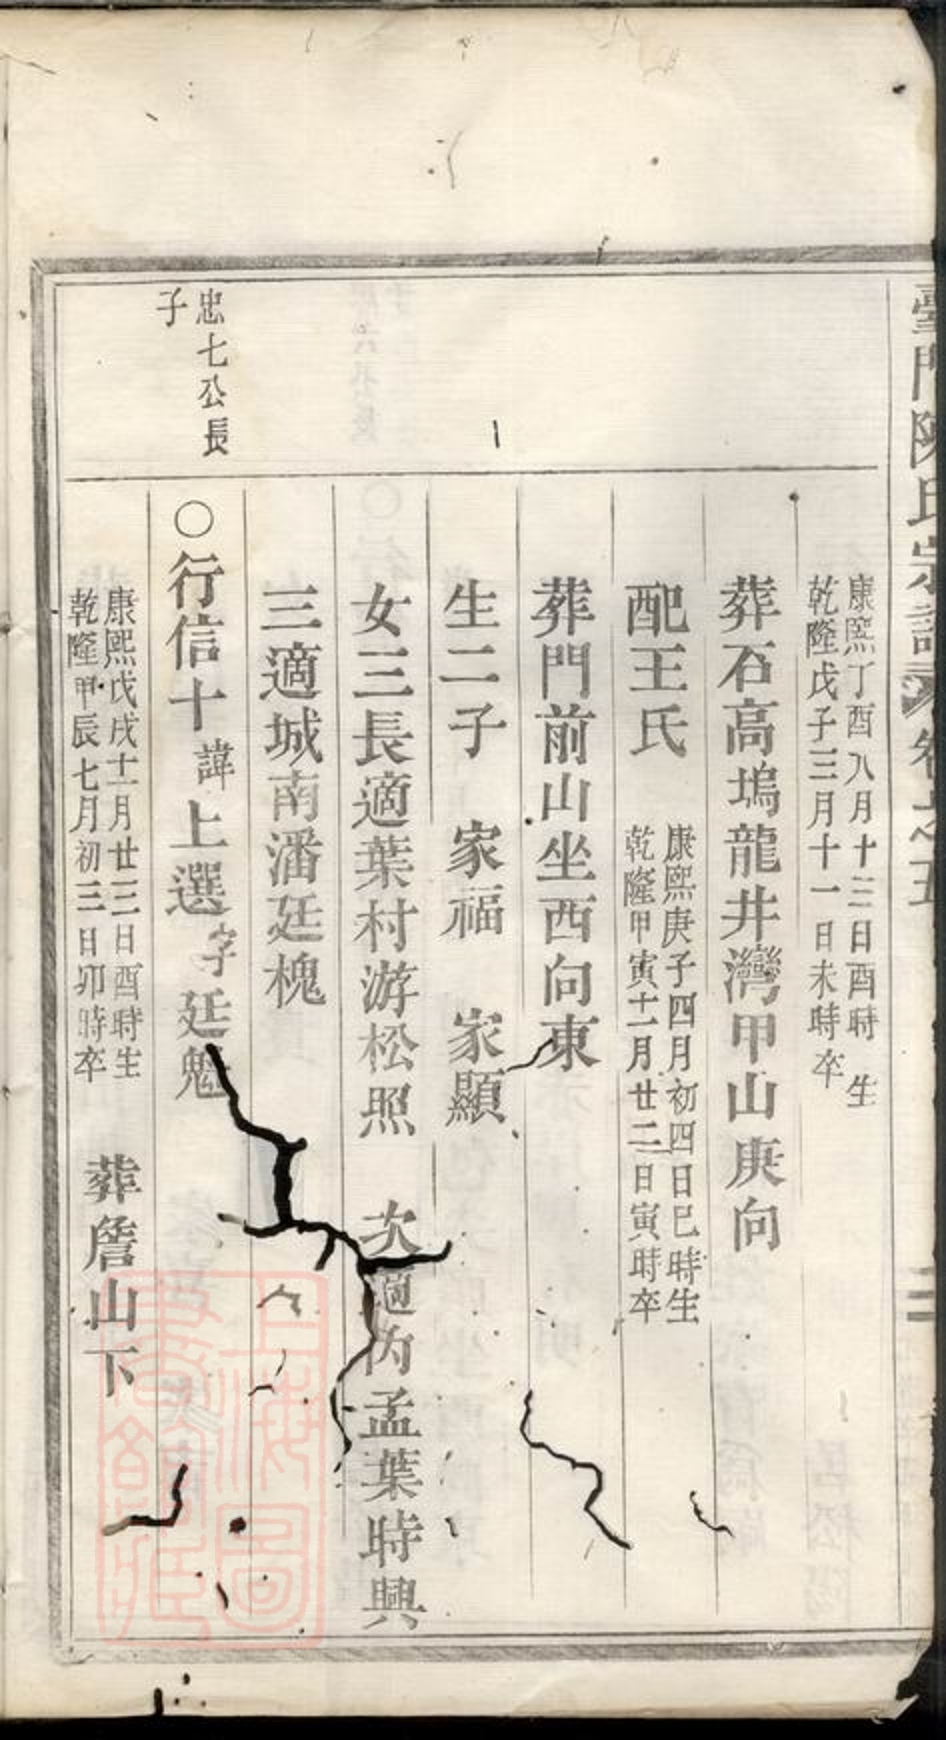 臺門陳氏宗譜 卷之五
康熙丁酉八月十三日酉時生
乾隆戊子三月十一日未時卒
葬石高塢龍井灣甲山庚向
配王氏
康熙庚子四月初四日巳時生
乾隆甲寅十一月廿二日寅時卒
葬門前山坐西向東
生二子 家福 家顯
女三長適葉村游松照 次適內孟葉時興
三適城南潘廷槐
忠七公長
子
○行信十諱上選字廷魁
康熙戊戌十一月廿三日酉時生
乾隆甲辰七月初三日卯時卒
葬詹山下
上海圖書館藏